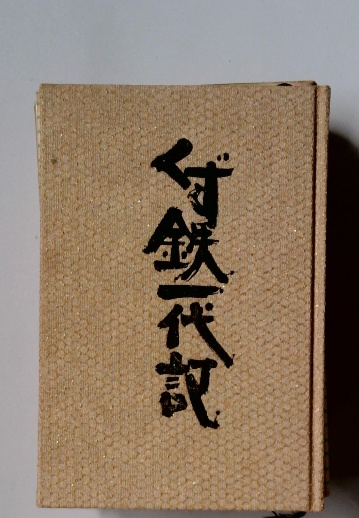 くず鉄一代記